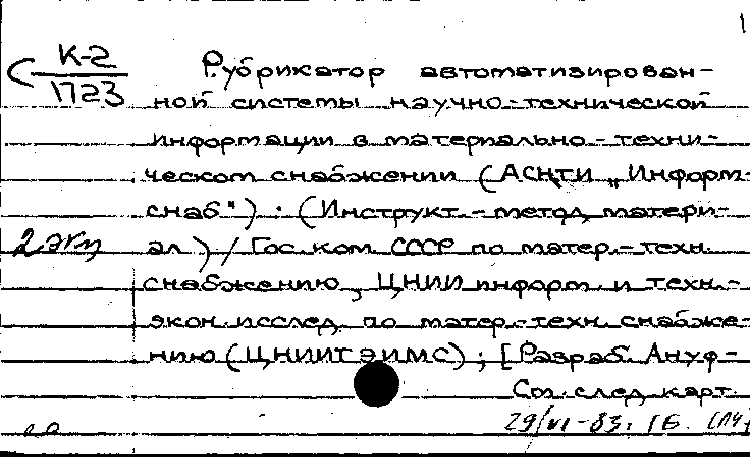 1
К-2
1723
Рубрикатор автоматизирован-
ной системы научно-технической
информации в материально-техни-
ческом снабжении (АСНТИ „Информ-
снаб"): (Инструкт.-метод. матери-
2 экз
ал) / Гос. ком. СССР по матер.-техн.
снабжению, ЦНИИ информ. и техн.-
экон. исслед. по матер.-техн. снабже-
нию (ЦНИИТЭИМС); [Разраб. Ануф-
См. след. карт.
29/VI-83. 1Б.